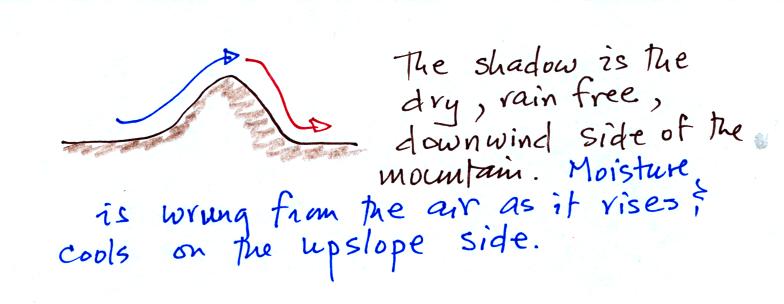 The shadow is the
dry, rain free,
downwind side of the
mountain. Moisture
is wrung from the air as it rises &
cools on the upslope side.